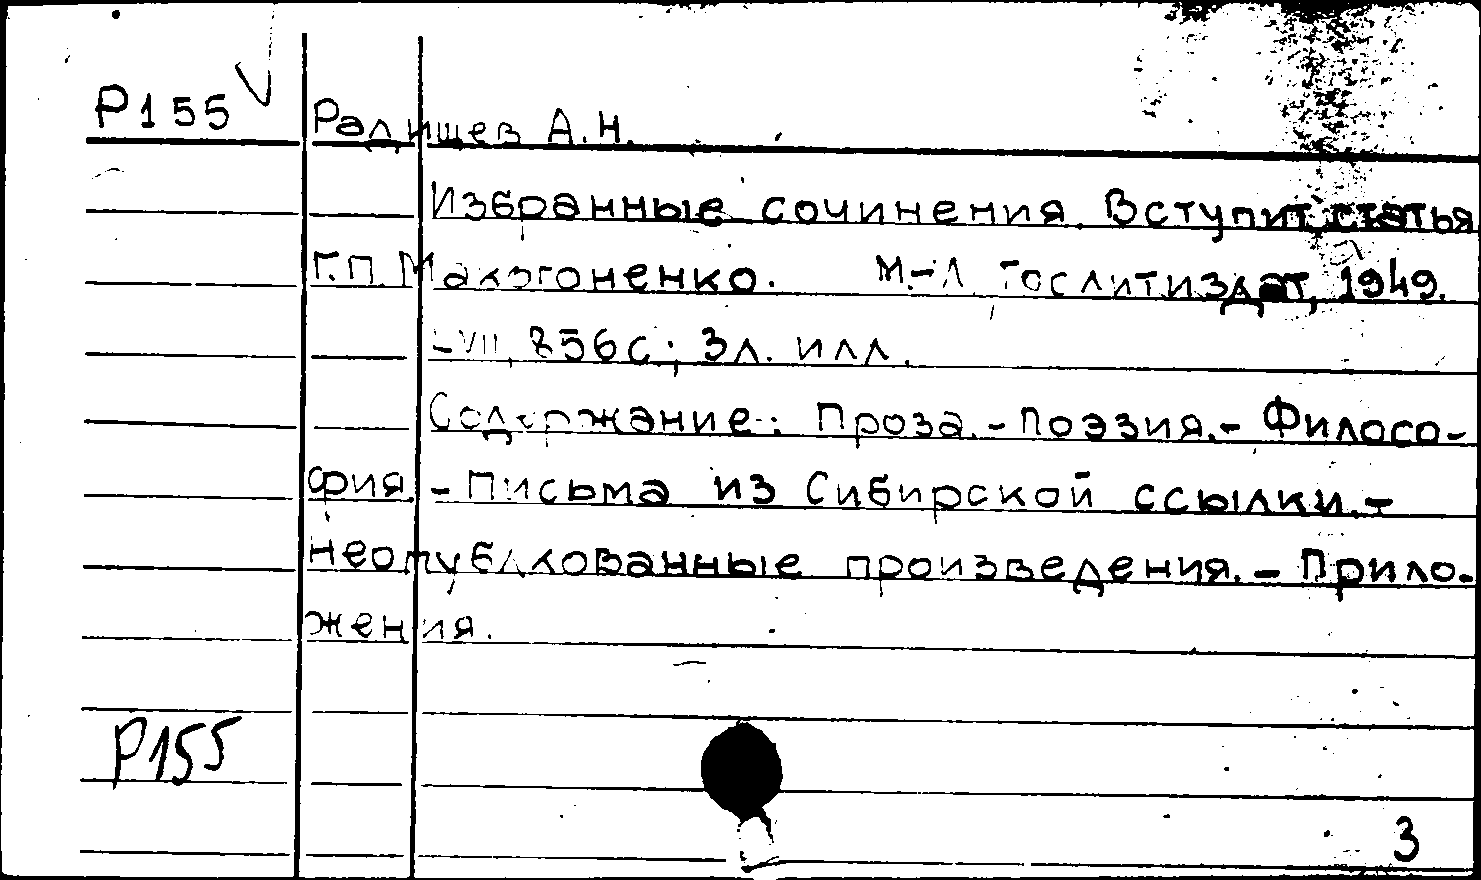 Р155 Радищев А.Н.
Избранные сочинения. Вступит. статья
Г.П. Макогоненко. М.-Л Гослитиздат, 1949.
LVII, 856с.; 3л. илл.
Содержание: Проза.- Поэзия.- Филосо-
фия. - Письма из Сибирской ссылки.-
Неопубликованные произведения. - Прило-
жения.
Р155
3